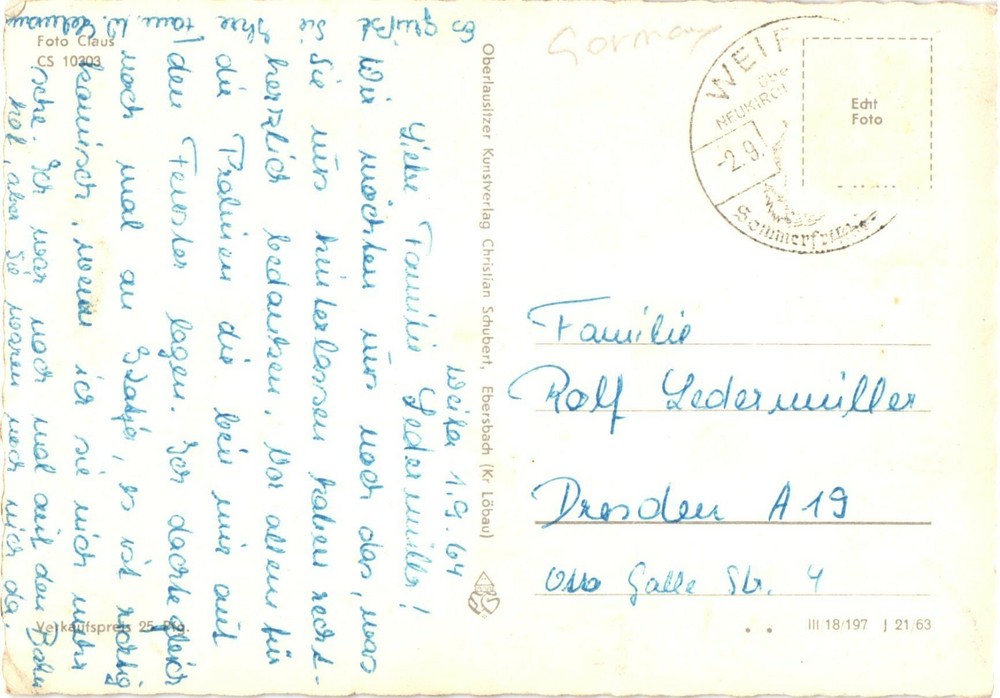 Weifa 1.9.64
Liebe Familie Ledermüller!
Wir möchten uns noch das, was
Sie uns hinterlassen haben recht-
herzlich bedanken. Vor allem für
die Pralinen die bei mir auf
den Fenster lagen. Ich dachte gleich
noch mal an Katja, es ist richtig
komisch, wenn ich sie nich mehr
sehe. Ich war noch mal auf den Bahn
hof, aber Sie waren nich da.
Es grüßt
Sie
Ihre
Fam. W.
Oberlausitzer Kunstverlag Christian Schubert, Ebersbach (Kr Löbau)
Foto Claus
CS 10303
Verkaufspreis 25 Pfg.
Germany
WEIF
NEUKIRCH
-2.9.
Sommerfrische
Echt
Foto
Familie
Rolf Ledermüller
Dresden A 19
Otto Galle Str. 4
III.18/197 J 21/63